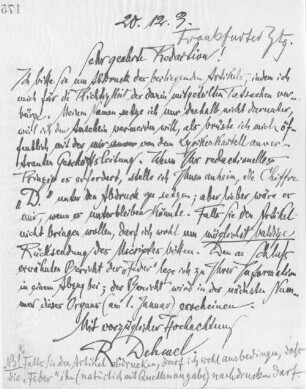 175
20.12.3.
Frankfurter Ztg.
Sehr geehrte Redaktion!
Ich bitte Sie um Abdruck des beiliegenden Artikels, indem ich
mich für die Richtigkeit der darin mitgeteilten Tatsachen ver-
bürge. Meinen Namen setze ich nur deshalb nicht darunter,
weil ich den Anschein vermeiden will, als brüste ich mich öf-
fentlich mit der mir vom Lyriker-Kartell anver-
trauten Geschäftsleitung. Wenn Ihr redactionelles
Prinzip es erfordert, stelle ich Ihnen anheim, die Chiffre
„D.“ unter den Abdruck zu setzen; aber lieber wäre es
mir, wenn es unterbleiben könnte. Falls Sie den Artikel
nicht bringen wollen, darf ich wohl um möglichst baldige
Rücksendung des Manuscriptes bitten. Den am Schluß
erwähnten Bericht der „Feder“ lege ich zu Ihrer Information
in einem Abzug bei; der Bericht wird in der nächsten Num-
mer dieses Organs (am 1. Januar) erscheinen
Mit vorzüglicher Hochachtung
R Dehmel.
NB! Falls Sie den Artikel abdrucken, darf ich wohl ausbedingen, daß
die „Feder“ ihn (natürlich mit Quellenangabe) nachdrucken darf.